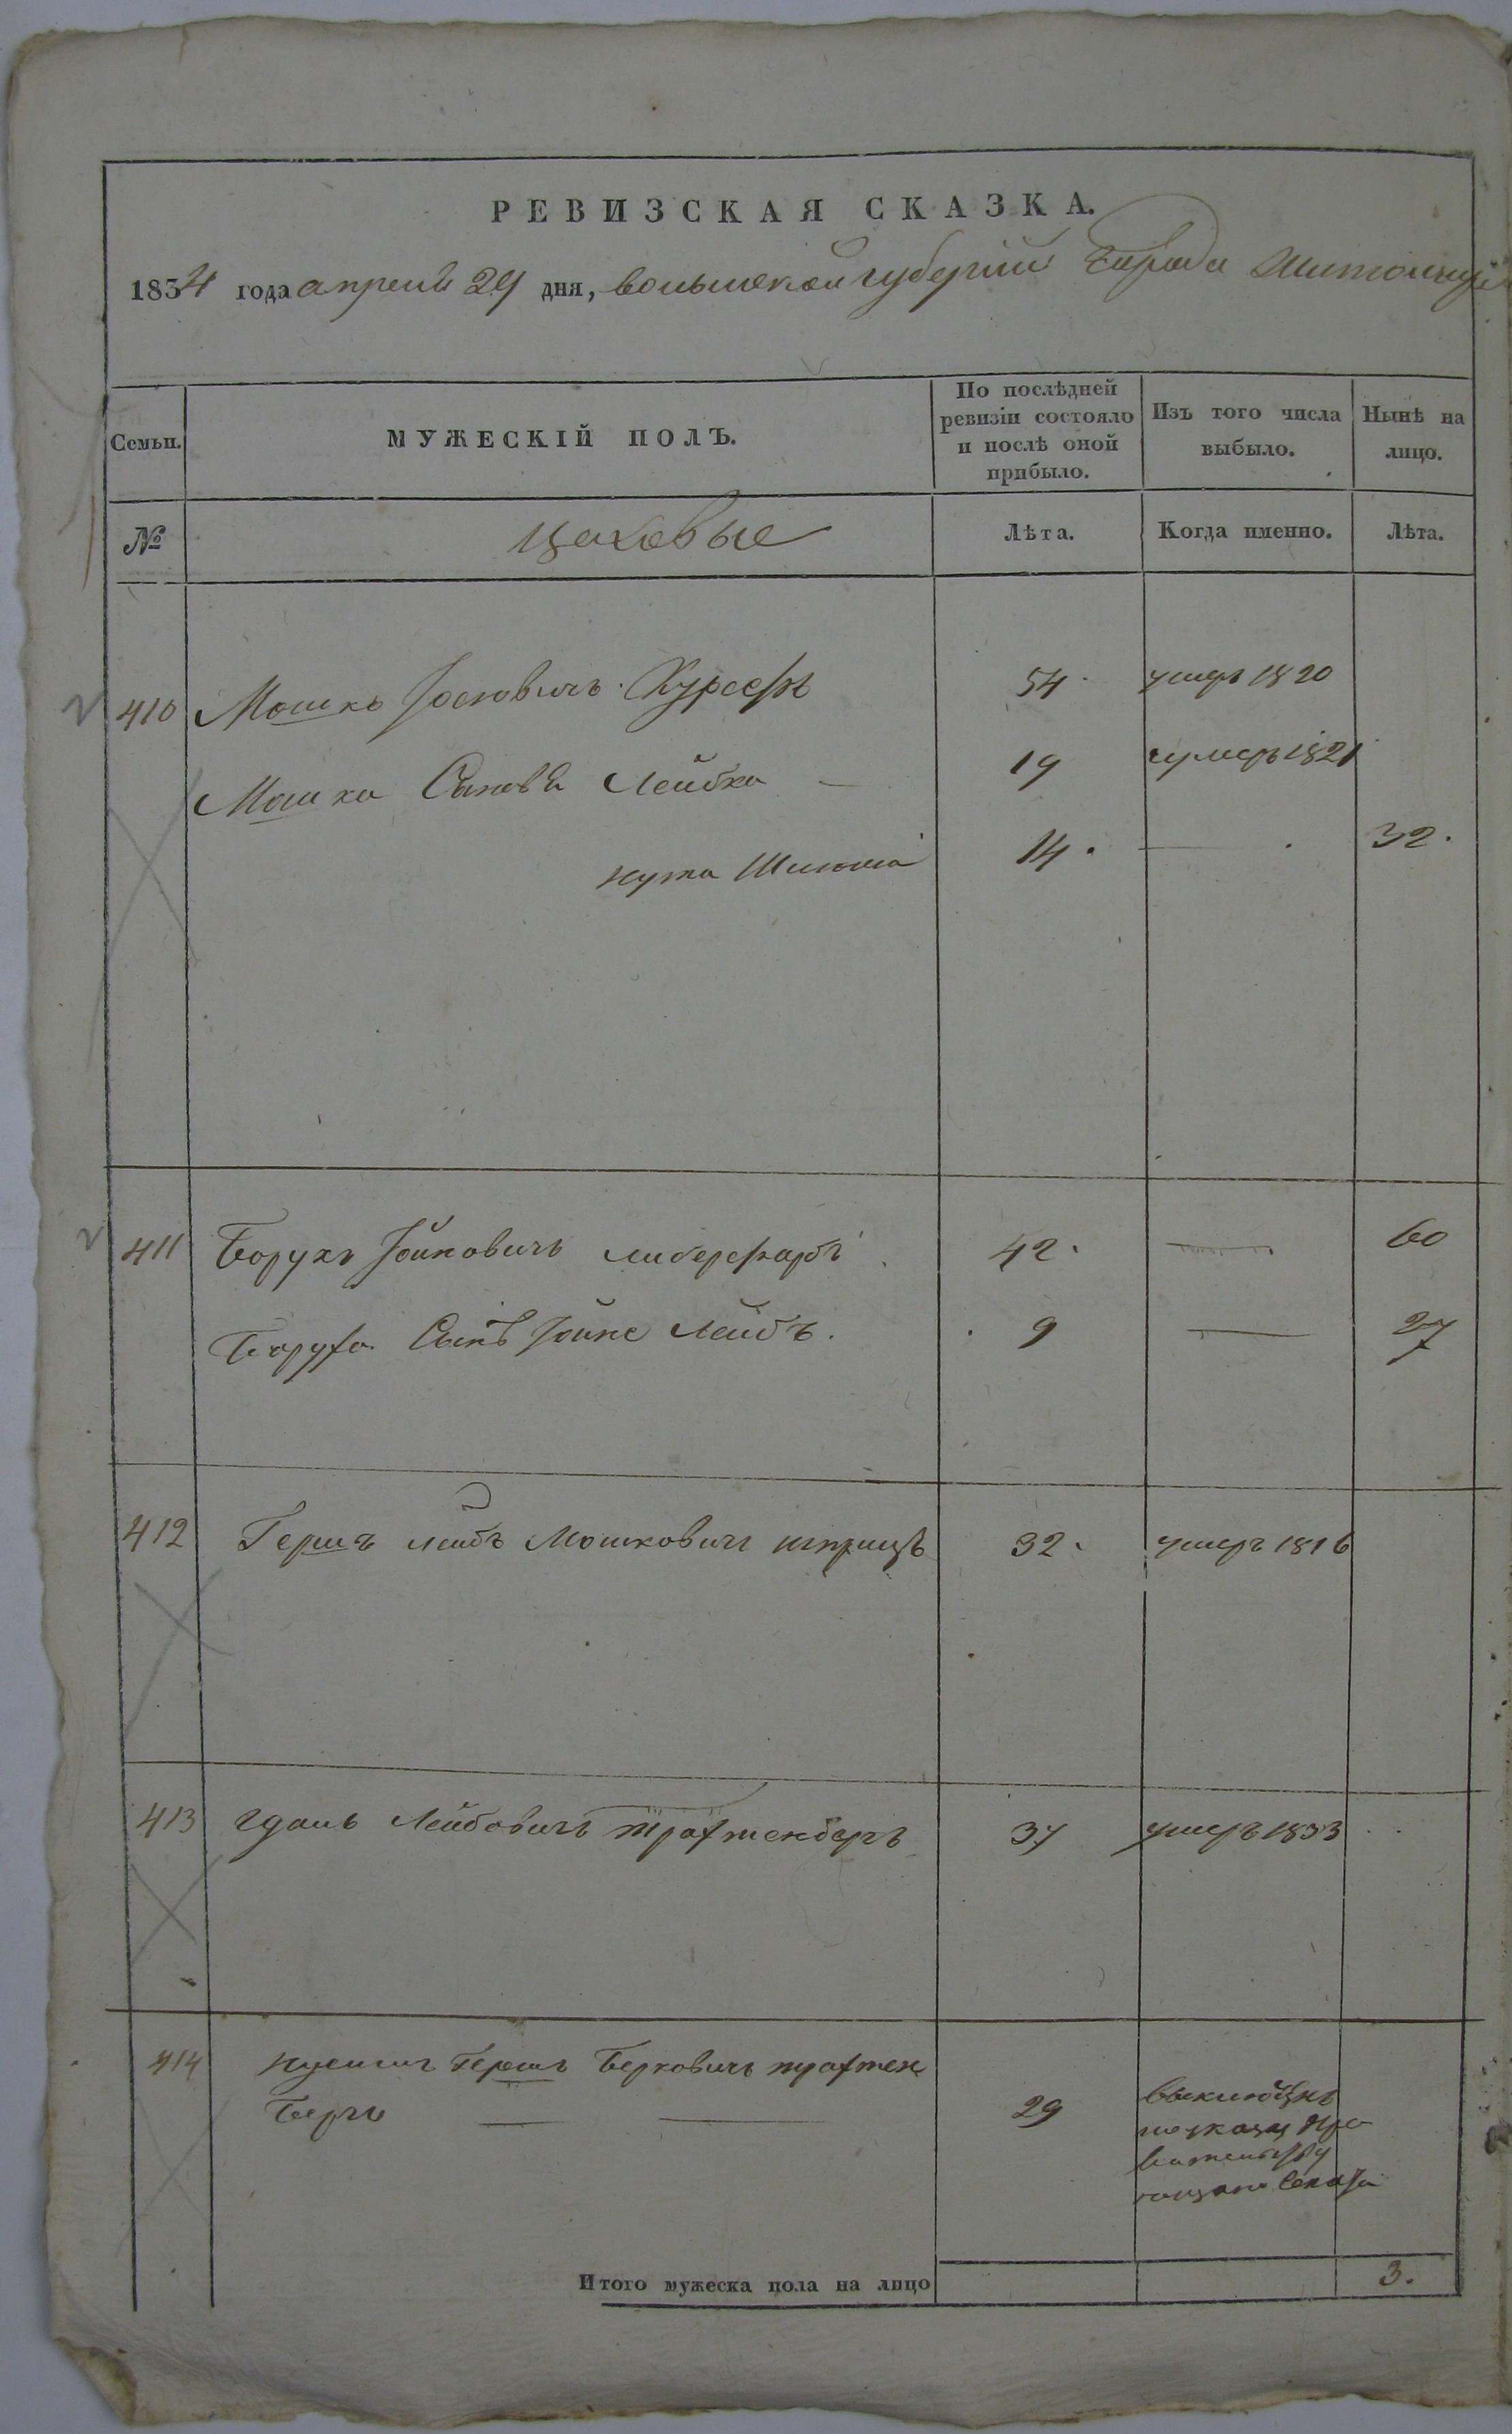 РЕВИЗСКАЯ СКАЗКА.
1834 года апреля 29 дня, волынской губернии города Житомира
Семьи. МУЖЕСКІЙ ПОЛЪ. По послѣдней ревизіи состояло и послѣ оной прибыло. Изъ того числа выбыло. Нынѣ на лицо.
№ цеховые Лѣта. Когда именно. Лѣта.
410 Мошко Іосіовичъ 54 умеръ 1820
Мошка Сыновья Лейбка — 19 умеръ 1821
Нута 14. — 32.
411 Борухъ Іойновичъ либерфарбъ 42. — 60
Боруха Сынъ Іойне Лейбъ. 9 — 27
412 Гершъ лейбъ Мошковичъ 32. умеръ 1816
413 Лейбовичъ трахтенберъ 37 умеръ 1833
414 Гершъ Берковичъ трахтен
Берге — — 29 выключенъ
по указу Пра
вительству
ющаго Сената
Итого мужеска пола на лицо 3.